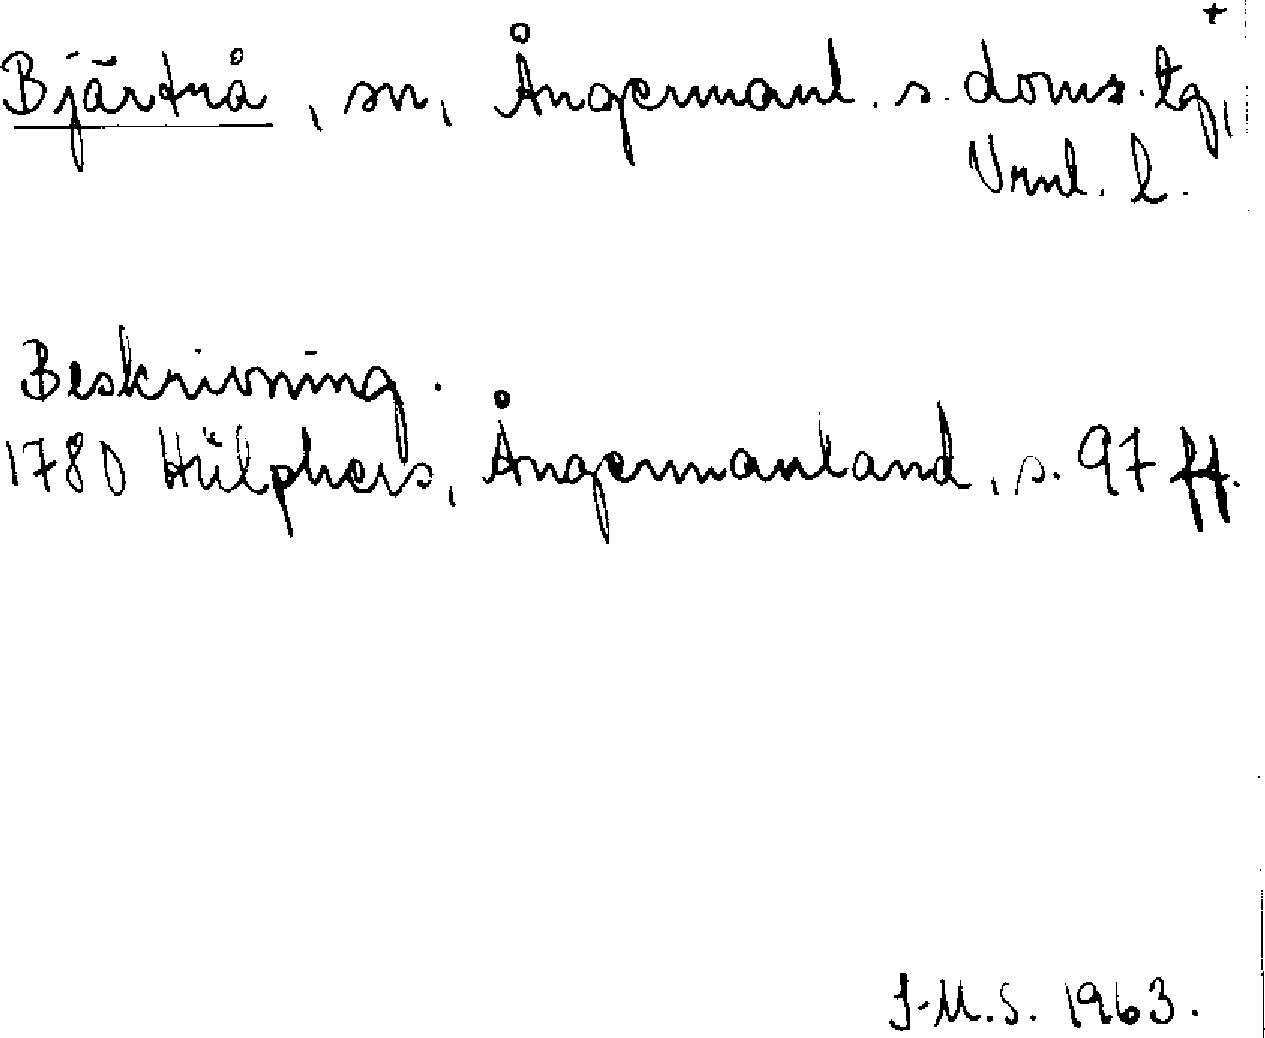 +
Bjärtrå, sn, Ångermanl. s. doms. tg,
Vrnl. l.
Beskrivning.
1780 Hülphers, Ångermanland, s. 97 ff.
J-M.S. 1963.